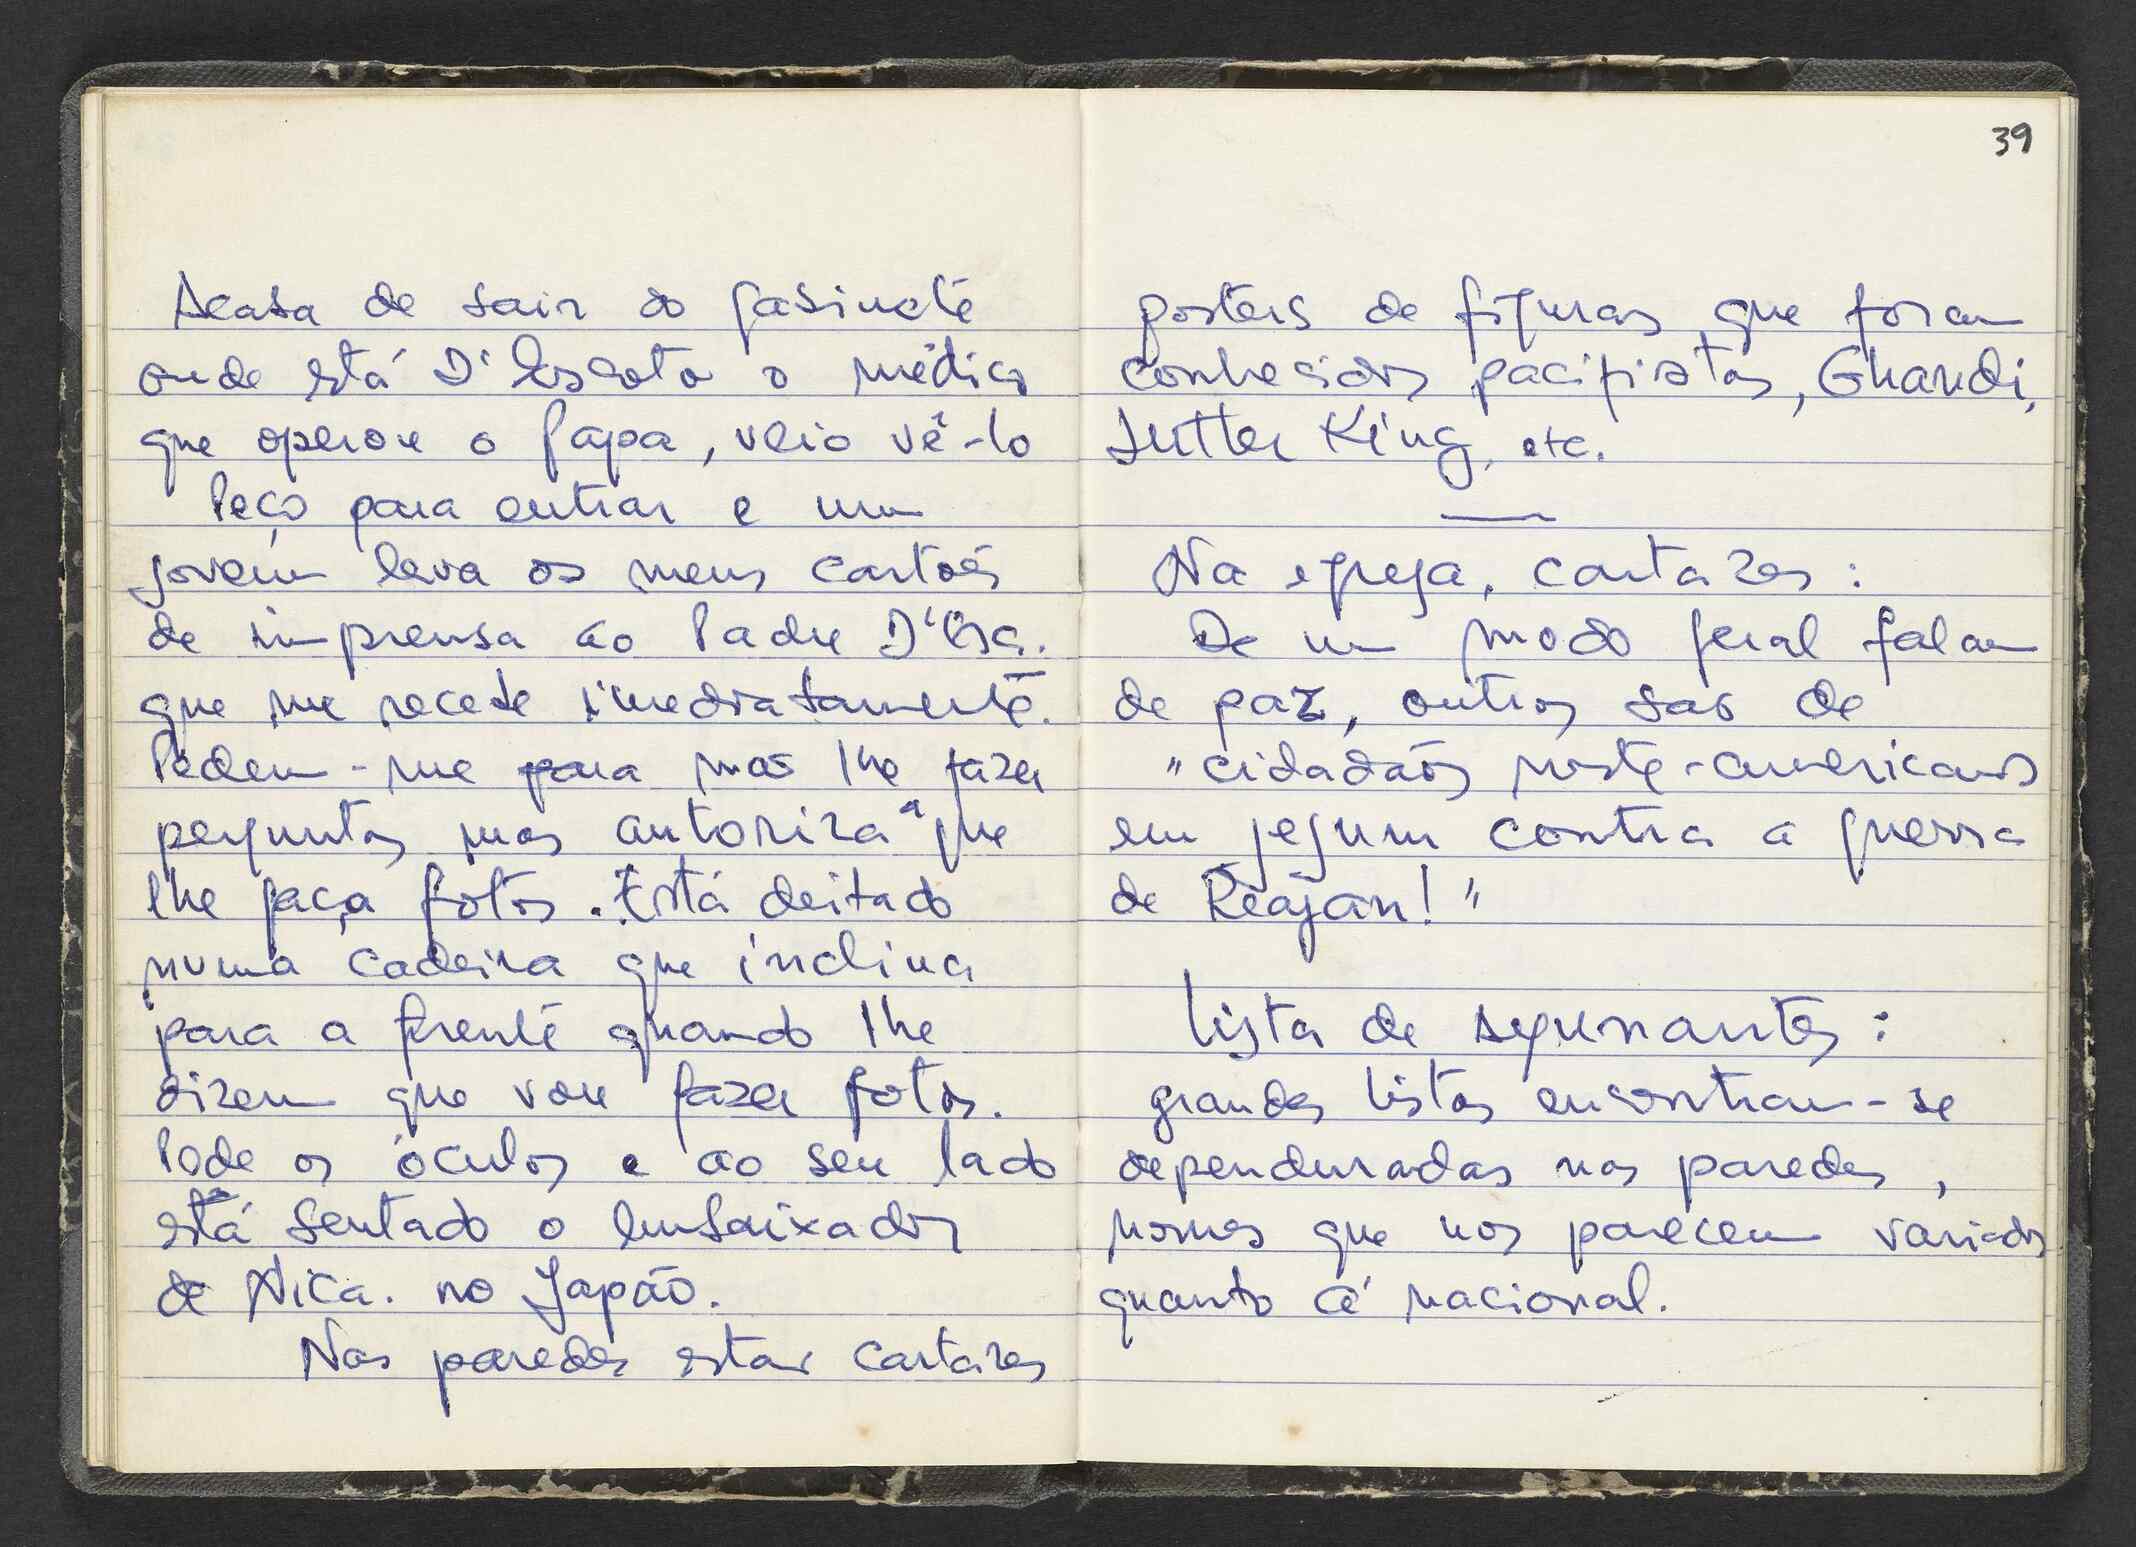 Acaba de sair do gabinete
onde está D'Escoto o médico
que operou o Papa, veio vê-lo
Peço para entrar e um
jovem leva os meus cartões
de imprensa ao Padre D'Esc.
que me recebe imediatamente.
Pedem-me para não lhe fazer
perguntas mas autoriza a que
lhe faça fotos. Está deitado
numa cadeira que inclina
para a frente quando lhe
dizem que vou fazer fotos.
Pede os óculos e ao seu lado
está sentado o embaixador
de Nica. no Japão.
Nas paredes estão cartazes
39
posters de figuras que foram
conhecidos pacifistas, Ghandi,
Lutter King, etc.
Na egreja, cartazes:
De um modo geral falam
de paz, outros são de
"cidadãos norte-americanos
em jejum contra a guerra
de Reagan!"
Lista de jejunantes:
grandes listas encontram-se
dependuradas nas paredes,
nomes que nos parecem variados
quanto à nacional.